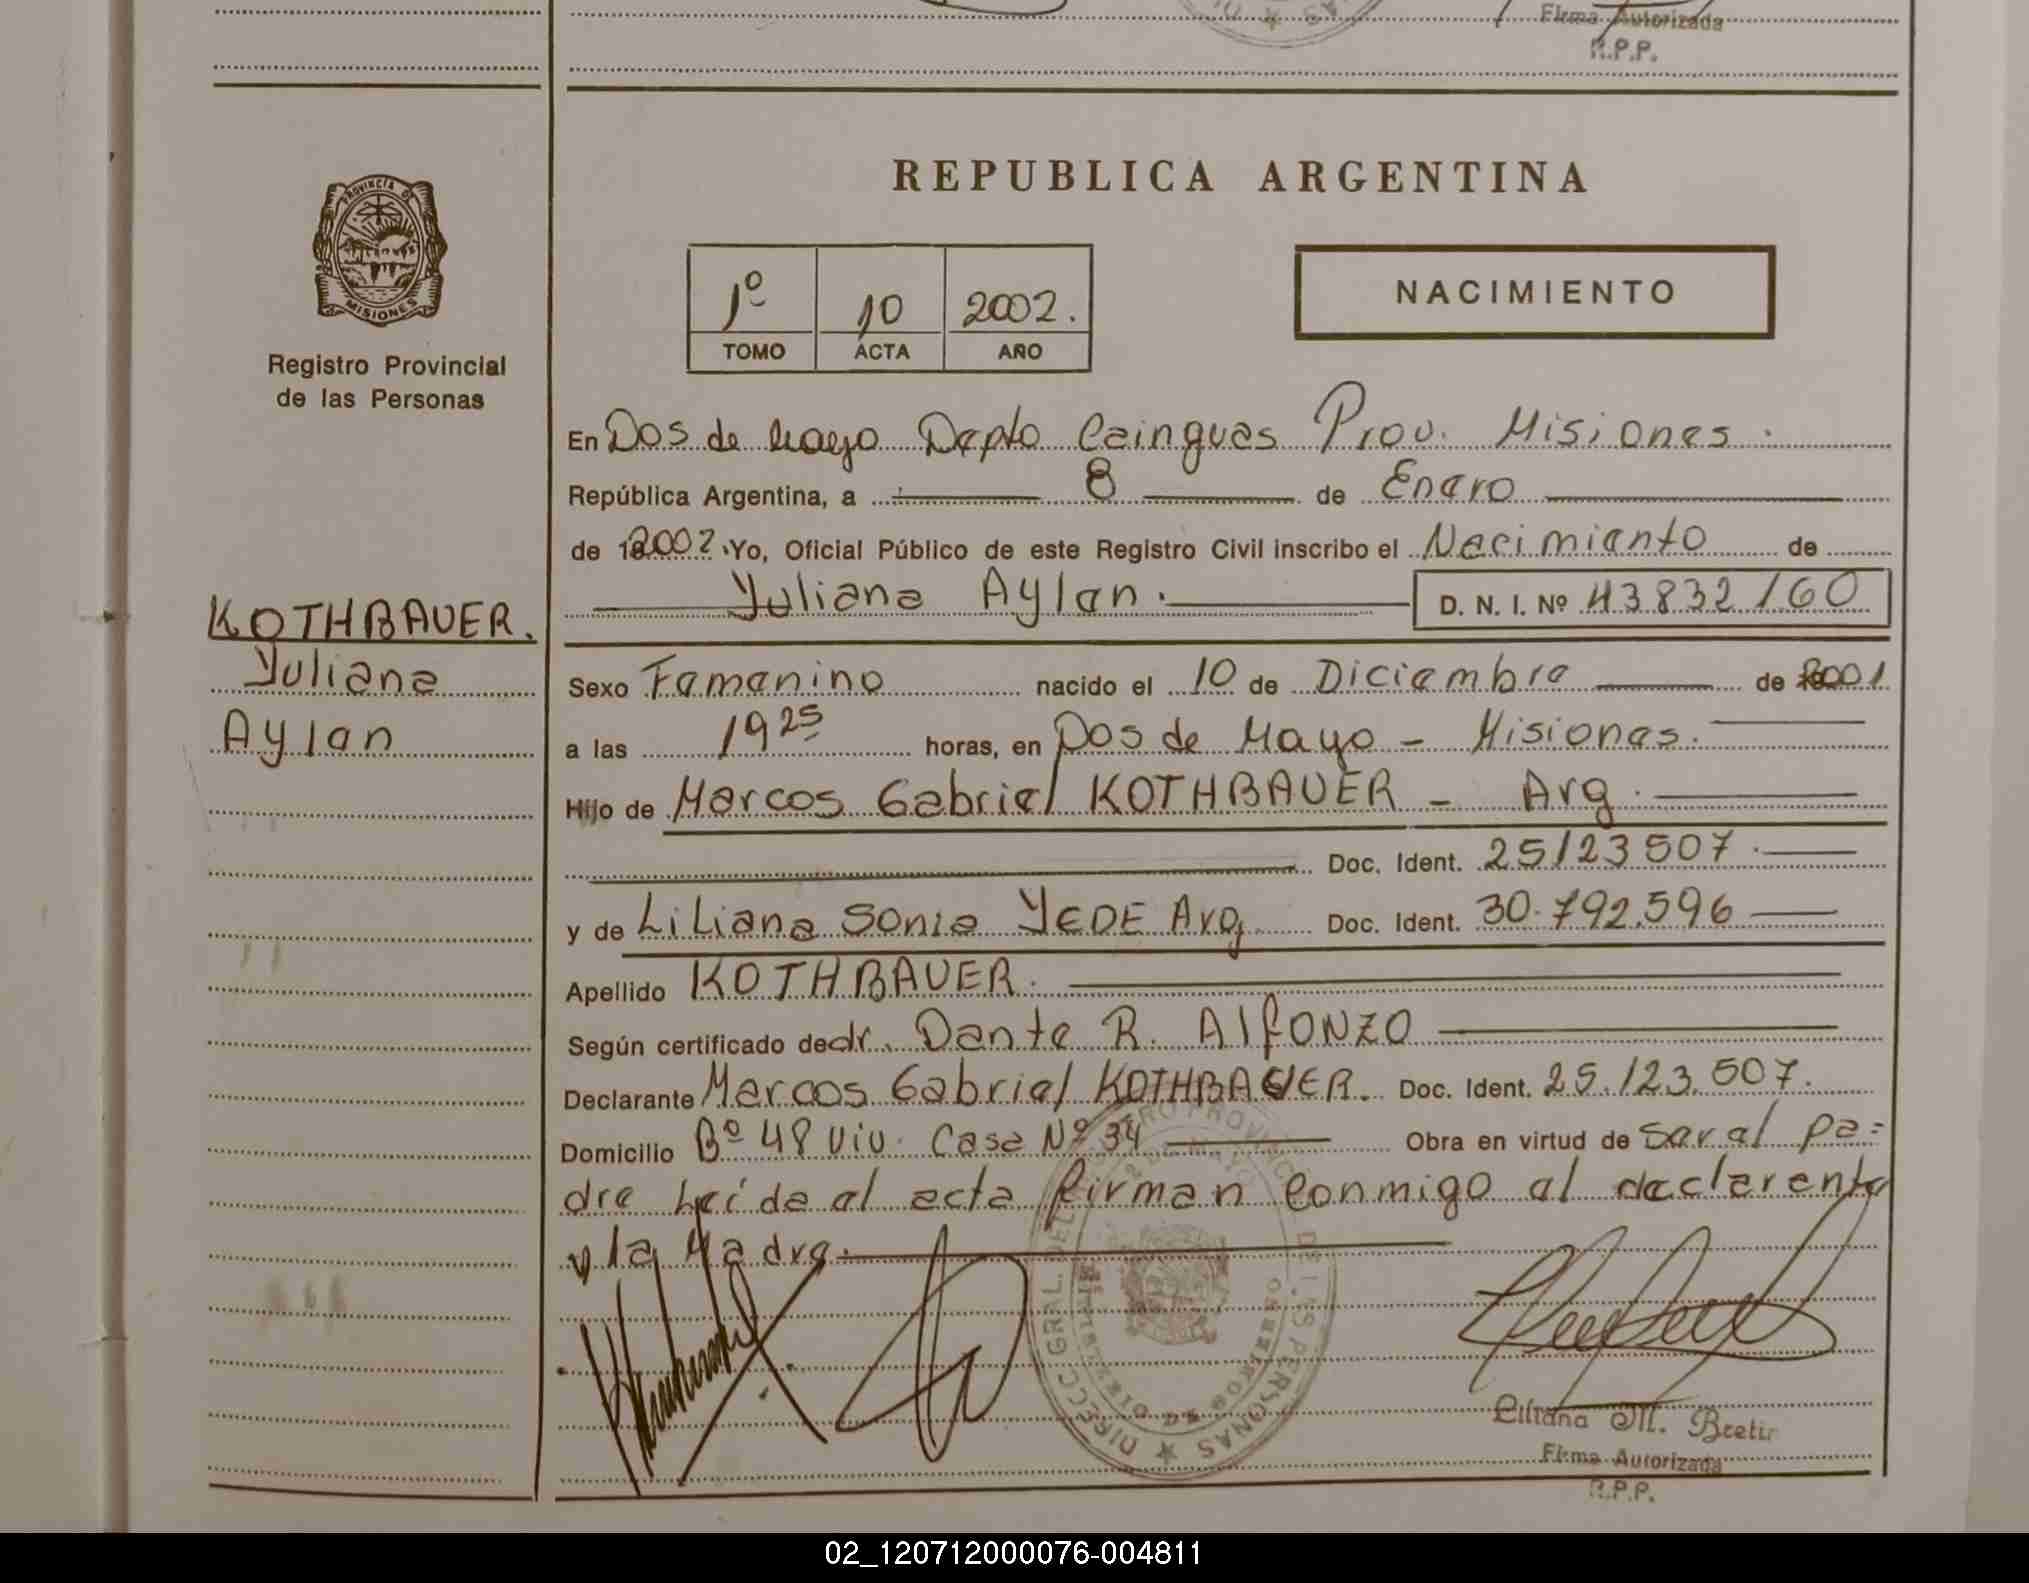 Firma Autorizada
R.P.P.
REPUBLICA ARGENTINA
PROVINCIA DE
MISIONES
Registro Provincial
de las Personas
1º 10 2002.
TOMO ACTA AÑO
NACIMIENTO
En Dos de Mayo Depto Cainguas Prov. Misiones.
República Argentina, a 8 de Enero
de 2002. Yo, Oficial Público de este Registro Civil inscribo el Nacimiento de
Yuliana Aylen. D. N. I. Nº 43832160
KOTHBAUER.
Yuliana
Aylen
Sexo Femenino nacido el 10 de Diciembre de 2001
a las 19 25 horas, en Dos de Mayo - Misiones.
Hijo de Marcos Gabriel KOTHBAUER - Arg.
Doc. Ident. 25123507.
y de Liliana Sonia YEDE Arg. Doc. Ident. 30.792.596
Apellido KOTHBAUER.
Según certificado de dr. Dante R. AlfONZO
Declarante Marcos Gabriel KOTHBAUER. Doc. Ident. 25.123.507.
Domicilio Bº 48 Viv. Casa Nº 34 Obra en virtud de ser el pa=
dre Leída el acta firman conmigo el declarante
y la Madre.
DIRECC GRAL. DEL REGISTRO PROVINCIAL DE LAS PERSONAS
2 DE MAYO
Liliana M.
Firma Autorizada
R.P.P.
02_120712000076-004811